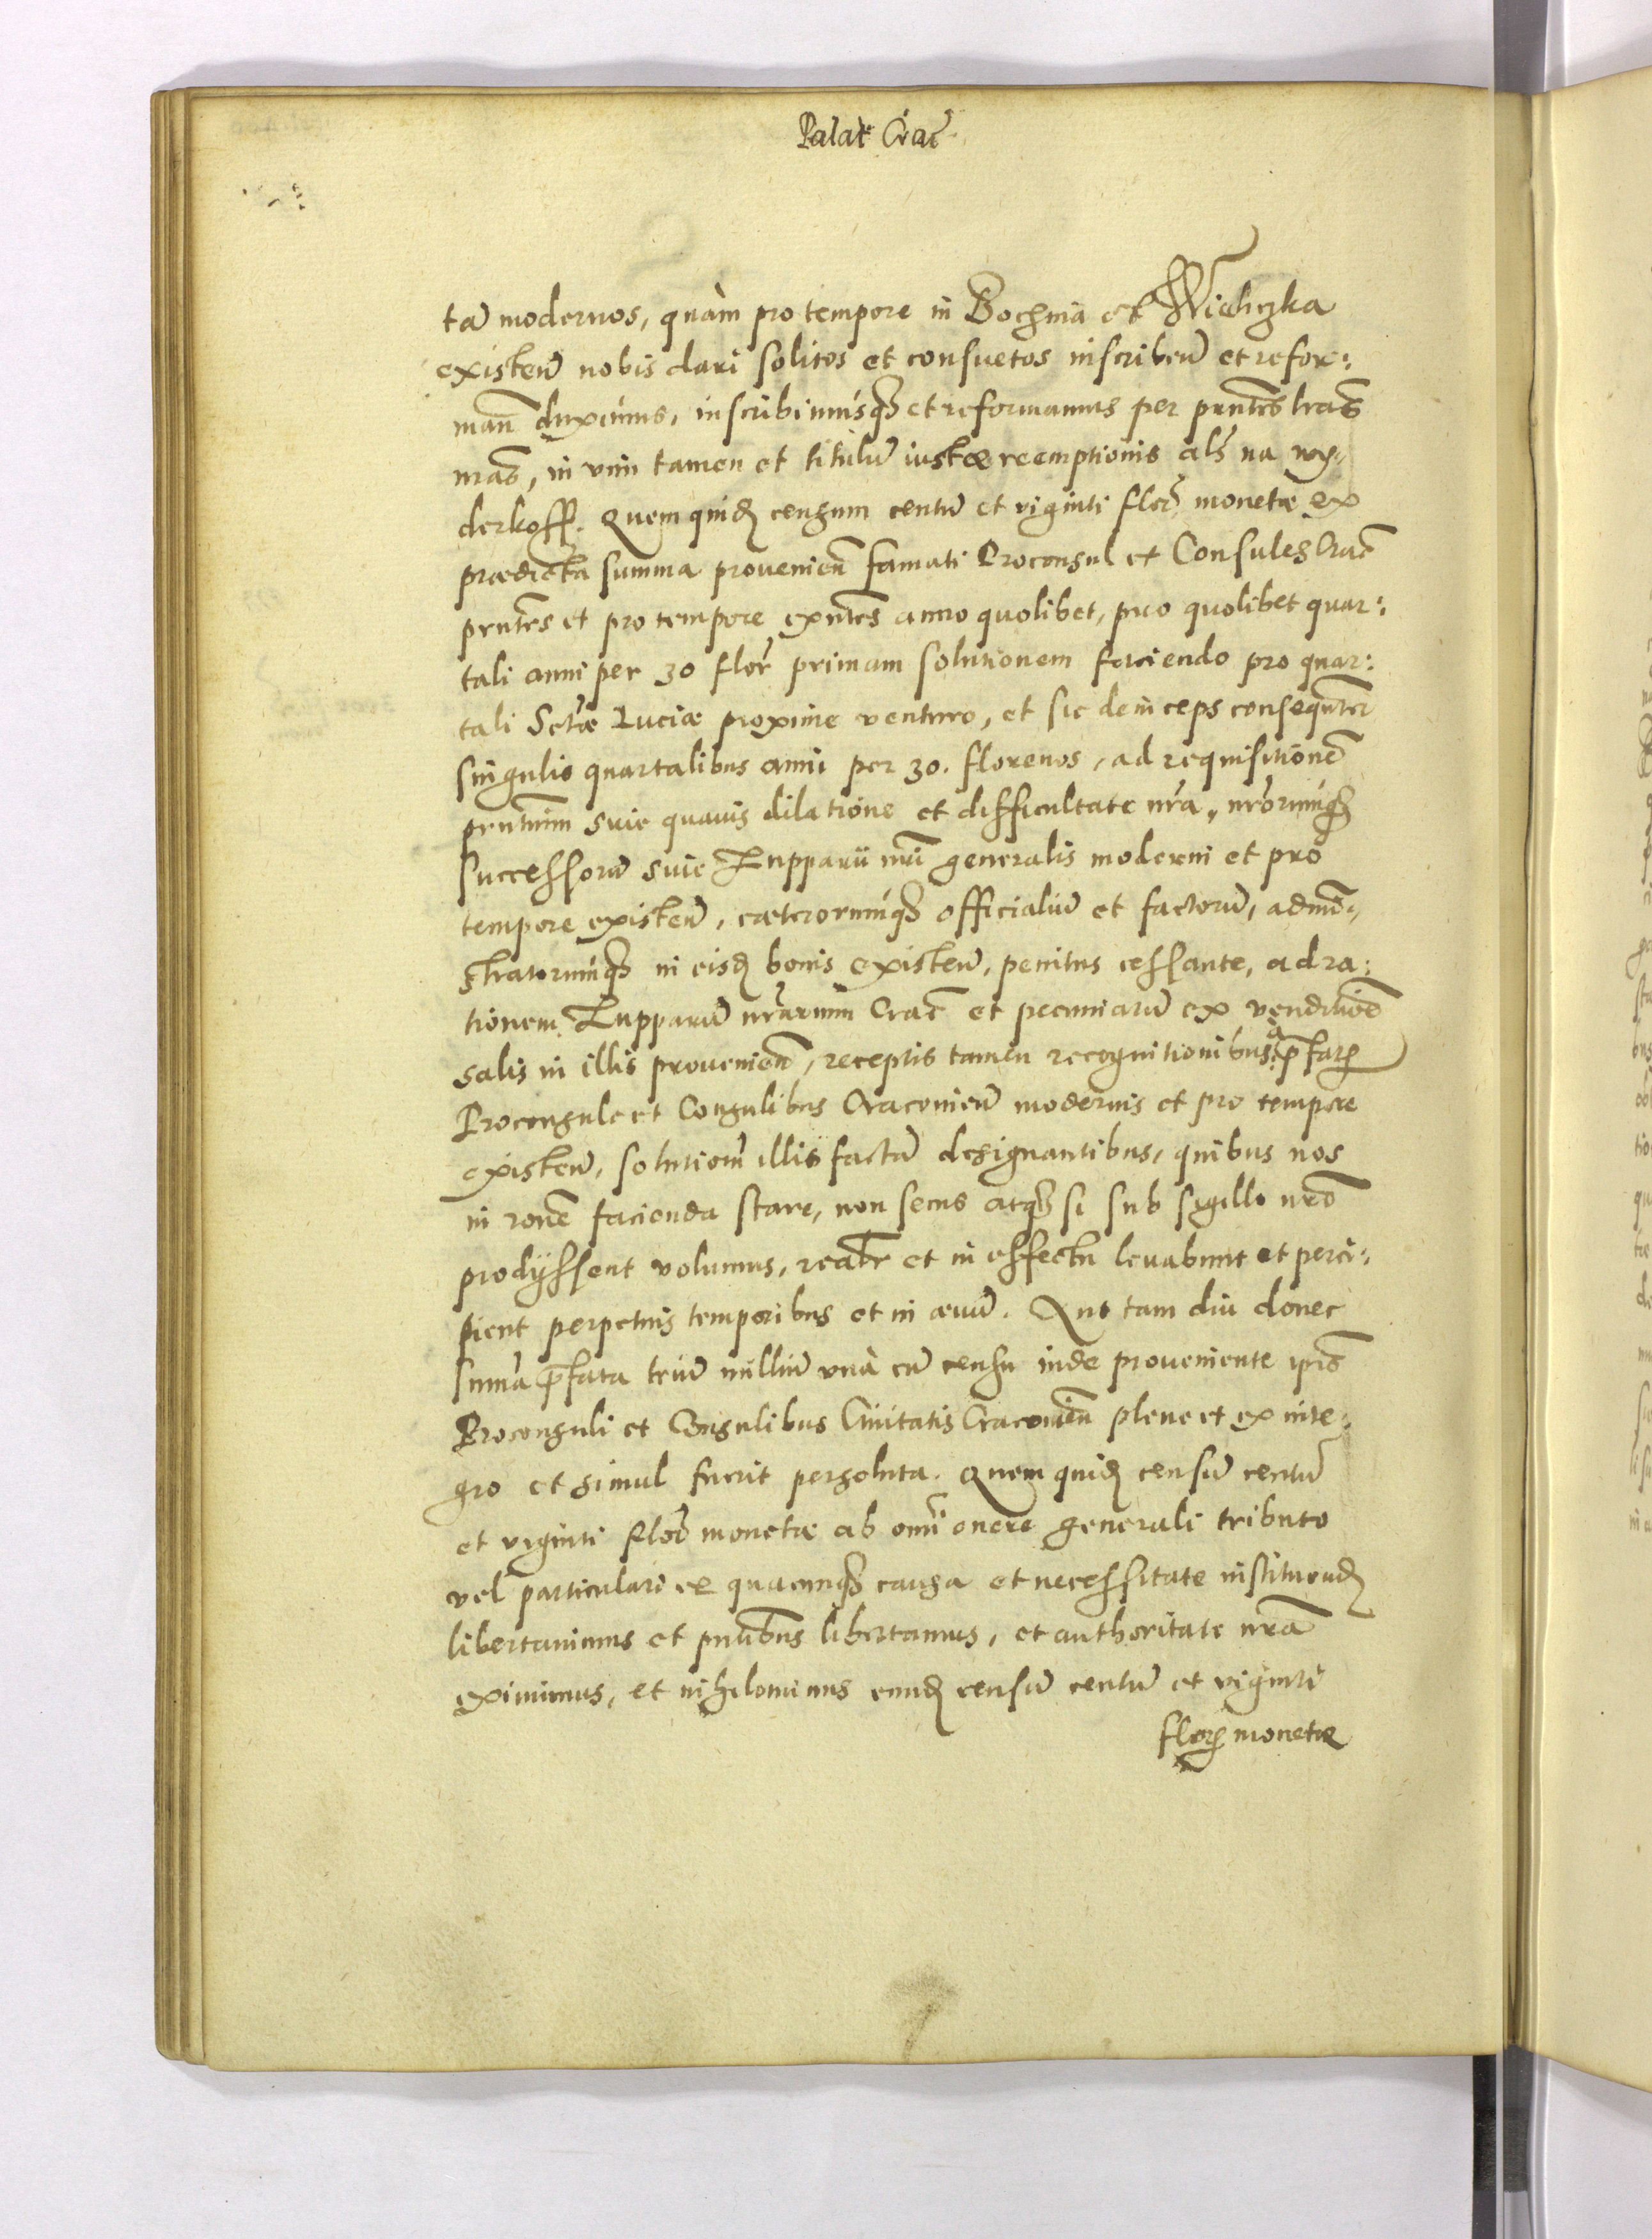 Palat Crac̄
tā modernos, quàm pro tempore in Bochnia et Wieliczka
existeñ nobis dari solitos et consuetos inscribeñ et refor:
mañ duximus, inscribimusq̃ et reformamus per pñtes lr̃as
nr̃as, in vim tamen et titulū iustæ reemptionis als̃ na wy,,
derkoff. Quem quid̃ censum centū et viginti flor̃ monetæ ex
prædicta summa provenieñ famati Proconsul et Consules Crac̄
prñtes et pro tempore exñtes anno quolibet, pro quolibet quar:
tali anni per 30 flor̃ primam solutionem faciendo pro quar:
tali Sctæ Luciæ proxime venturo, et sic deinceps conseqñter
singulis quartalibus anni per 30. florenos, ad requisitionē
prñtium sine quavis dilatione et difficultate nr̃a, nr̃orumq̃
successorū sive Zupparii nr̃i generalis moderni et pro
tempore existeñ, cæterorumq̃ officialiū et factorū, admi,,
stratorumq̃ in eisd̃ bonis existeñ, penitus cessante, ad ra:
tionem Zupparū nr̃arum Crac̄ et pecuniarū ex venditiōe
salis in illis provenieñ, receptis tamen recognitionibus a p̄fatis
Proconsule et Consulibus Cracovieñ modernis et pro tempore
existeñ, solutioñ illis factā designantibus, quibus nos
in ronē facienda stare, non secus atq̃ si sub sigillo nr̃o
prodyssent volumus, realr̃ et in effectu levabunt et perci:
pient perpetuis temporibus et in ævū. Aut tam diu donec
suma p̄fata triū milliū unà cū censu inde proveniente ipis̃
Proconsuli et Consulibus Civitatis Cracovieñ plene et ex inte,,
gro et simul fuerit persoluta. Quem quid̃ censū centū
et viginti flor̃ monetæ ab omī onere generali tributo
vel particulari ex quacunq̃ causa et necessitate instituend̃
libertavimus et pñtibus libertamus, et authoritate nr̃a
eximimus, et nihilominus eund̃ censū centū et viginti
flor̃ monetæ